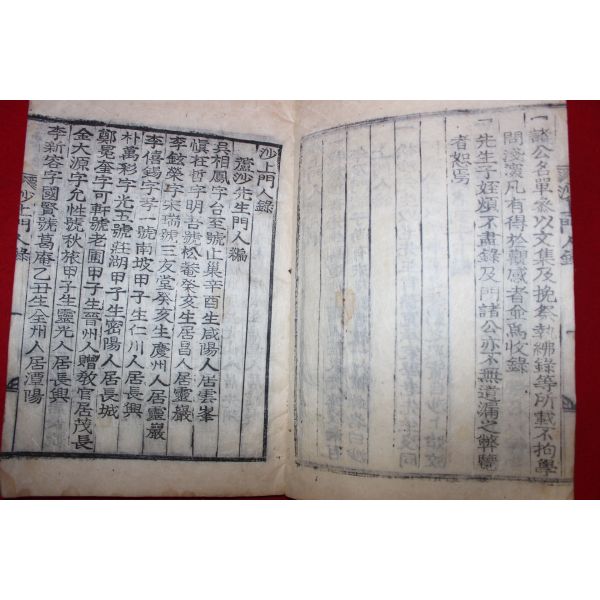 一諸公名單參以文集及挽祭執紼錄等所載不拘學
問淺深凡有得於觀感者僉爲收錄
一先生子姪頗不盡錄及門諸公亦不無遺漏之弊覽
者恕焉
沙上門人錄
沙上門人錄
蘆沙先生門人編
吳相鳳字台至號止巢辛酉生咸陽人居雲峯
愼在哲字明吉號松菴癸亥生居昌人居靈巖
李鉉癸字宋瑞號三友堂癸亥生慶州人居靈巖
李僖錫字亨一號南坡甲子生仁川人居長興
朴萬彩字光五號莊湖甲子生密陽人居長城
鄭冕奎字可軒號老圃甲子生晉州人贈敎官居茂長
金大源字允性號秋旅甲子生靈光人居長興
李新容字國賢號葛庵乙丑生全州人居潭陽
沙上門人錄